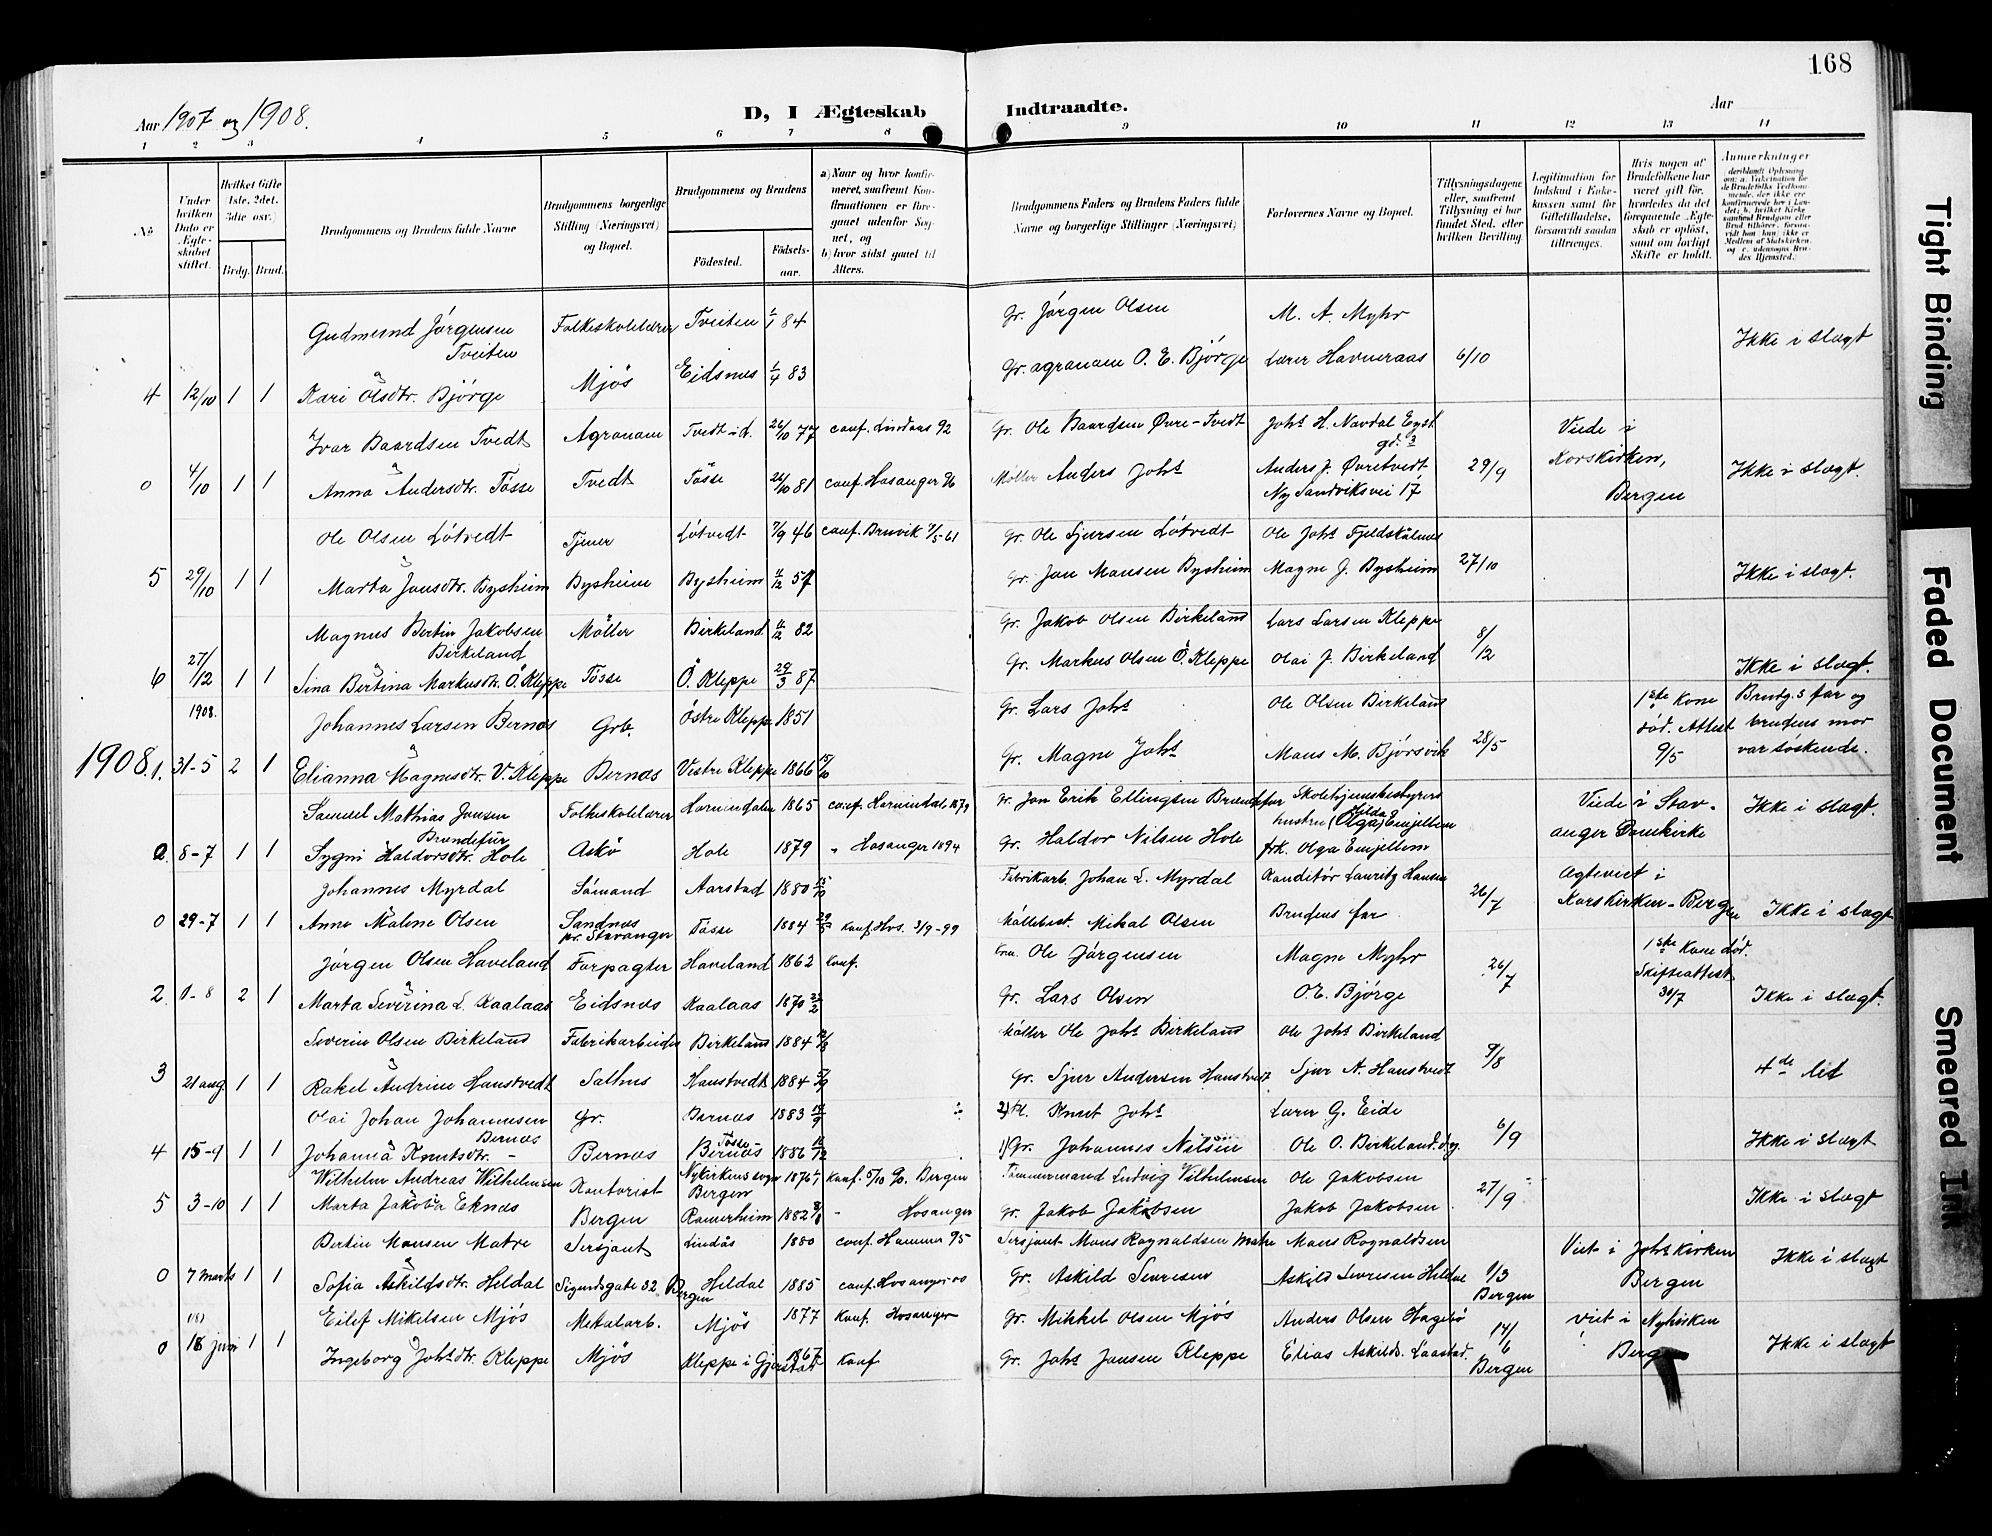 168
Aar 1907 og 1908.
D, I Ægteskab Indtraadte.
Aar
1 2 3 4 5 6 7 8 9 10 11 12 13 14
No
Under hvilken Dato er Ægteskabet stiftet.
Hvilket Gifte (1ste, 2det, 3die osv.)
Brdg. Brud.
Brudgommens og Brudens fulde Navne
Brudgommens borgerlige Stilling (Næringsvei) og Bopæl.
Brudgommens og Brudens
Födested.
Födselsaar.
a) Naar og hvor konfirmeret, saafremt Konfirmationen er foregaaet udenfor Sognet, og
b) hvor sidst gaaet til Alters.
Brudgommens Faders og Brudens Faders fulde Navne og borgerlige Stillinger (Næringsvei)
Forlovernes Navne og Bopæl.
Tillysningsdagene eller, saafremt Tillysning ei har fundet Sted, efter hvilken Bevilling.
Legitimation for Indskud i Enkekassen samt for Giftetilladelse, forsaavidt saadan tiltrænges.
Hvis nogen af Brudefolkene har været gift før, hvorledes da det foregaaende Ægteskab er oplöst, samt om lovligt Skifte er holdt.
Anmærkninger
Gudmund Jörgensen Tveiten Folkeskolelærer Tveiten 2/1 84 Gr. Jörgen Olsen M. A. Myhr
4 12/10 1 1 Kari Olsdtr. Björge Mjös Eidsnes 1/4 83 Gr. agronom O. E. Björge Lærer Havneraas 6/10 Ikke i slægt
Ivar Baardsen Tvedt Agronom Tvedt i L. 26/10 77 conf. Lindaas 92 Gr. Ole Baardsen Øvre-Tvedt Johs H. Navdal Eyst gd. 3 Viede i
0 4/10 1 1 Anna Andersdtr. Tösse Tvedt Tösse 26/10 81 conf. Hosanger 96 Möller Anders Johs Anders J. Øvretvedt Ny Sandviksvei 17 29/9 Korskirken, Bergen Ikke i slægt.
Ole Olsen Lötvedt Tjener Lötvedt 7/9 46 conf. Bruvik 7/5-61 Gr. Ole Sjursen Lötvedt Ole Johs Fjeldskålnes
5 29/10 1 1 Marta Jonsdtr. Bysheim Bysheim Bysheim 11/12 57 Gr. Jon Monsen Bysheim Magne J. Bysheim 27/10 Ikke i slægt.
Magnus Bertin Jakobsen Birkeland Möller Birkeland 11/12 82 Gr. Jakob Olsen Birkeland Lars Larsen Kleppe
6 27/12 1 1 Sina Bertina Markusdtr. Ö. Kleppe Tösse Ö. Kleppe 29/3 87 Gr. Markus Olsen Ö. Kleppe Olai J. Birkeland 8/12 Ikke i slægt.
1908.
Johannes Larsen Bernes Grb. Östre Kleppe 1851 Gr. Lars Johs Ole Olsen Birkeland 1ste Kone död. Attest 9/5 Brudg.s far og brudens mor var söskende.
1908. 1. 31-5 2 1 Elianna Magnesdtr. V. Kleppe Bernes Vestre Kleppe 1866 15/10 Gr. Magne Johs Mons M. Björsvik 28/5
Samuel Mathias Jonsen Brundefur Folkeskolelærer Hornindalen 1865 conf. Hornindal 1879 Gr. Jon Erik Ellingsen Skolehjemsbestyrers hustru (Olga) Hilda Viede i Stavanger Domkirke Ikke i slægt.
8-7 1 1 Sygni Haldorsdtr. Hole Askö Hole 1879 „ Hosanger 1894 Gr. Haldor Nilsen Hole frk. Olga
Johannes Myrdal Sömand Aarstad 1880 15/10 Fabrikarb. Johan L. Myrdal Konditör Lauritz Hansen Ægteviet i
0 29-7 1 1 Anne Malene Olsen Sandnes pr. Stavanger Tösse 1884 Konf. Hos. 3/9-99 Möllebest. Mikal Olsen Brudens far 26/7 Korskirken-Bergen Ikke i slægt
Jörgen Olsen Haveland Forpagter Haveland 1862 Konf. Ole Jörgensen Magne Myhr 1ste Kone död. Skifteattest 30/7
2. 1-8 2 1 Marta Severina L. Kaalaas Eidsnes Kaalaas 1870 Gr. Lars Olsen O. E. Björge 26/7 Ikke i slægt.
Severin Olsen Birkeland Fabrikarbeider Birkeland 1884 Möller Ole Johs Birkeland Ole Johs Birkeland
3 21 aug 1 1 Rakel Andrine Hanstvedt Salhus Hanstvedt 1884 Gr. Sjur Andersen Hanstvedt Sjur A. Hanstvedt 9/8 4de led
Olai Johan Johannessen Bernes Gr. Bernes 1883 2) Knut Johs Lærer G. Eide
4 15-9 1 1 Johanna Knutsdtr. - Bernes Tösse Bernes 1886 1) Gr. Johannes Nilsen Ole O. Birkeland 6/9 Ikke i slægt
Wilhelm Andreas Wilhelmsen Kontorist Nykirkens sogn Bergen 1876 Konf. 5/10 90. Bergen Tömmermand Ludvig Vilhelmsen Ole Jakobsen
5 3-10 1 1 Marta Jakoba Eknes Bergen Romerheim 1882 „ Hosanger Gr. Jakob Jakobsen Jakob Jakobsen 27/9 Ikke i slægt
Bertin Monsen Matre Sersjant Lindås 1880 conf. Hammer 95 Sersjant Mons Rognaldsen Matre Mons Rognaldsen Viet i Johskirken
0 7 marts 1 1 Sofia Askildsdtr. Heldal Sigurdsgate 32 Bergen Heldal 1885 conf. Hosanger Gr. Askild Severesen Askild Severesen Heldal 1/3 Bergen Bergen Ikke i slægt
Eilef Mikelsen Mjös Metalarb. Mjös 1877 Konf. Hosanger Gr. Mikkel Olsen Mjös Anders Olsen Hagebö Viet i Nykirken
0 18 juni 1 1 Ingeborg Johsdtr. Kleppe Mjös Kleppe i Gjerstad 1867 Konf Gr. Johs Jonsen Kleppe Elias Askilds. Låastad. 14/6 Bergen Berg Ikke i slægt
Tight Binding
Faded Document
Smeared Ink